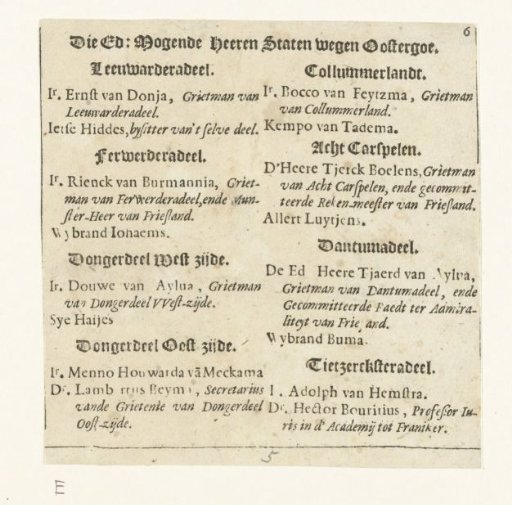 6
Die Ed: Mogende Heeren Staten wegen Oostergoe.
Leeuwarderadeel.
Ir. Ernst van Donja, Grietman van
Leeuwarderadeel.
Ietse Hiddes, bysitter van't selve deel.
Ferwerderadeel.
Ir. Rienck van Burmannia, Griet-
man van Ferwerderadeel, ende Mun-
ster-Heer van Friesland.
Wybrand Iohaems.
Dongerdeel West zijde.
Ir. Douwe van Aylua, Grietman
van Dongerdeel VVest-zijde.
Sye Haijes
Dongerdeel Oost zijde.
Ir. Menno Houwarda vā Meckama
Dr. Lambertus Beyma, Secretarius
vande Grietenie van Dongerdeel
Oost-zijde.
Collummerlandt.
Ir. Bocco van Feytzma, Grietman
van Collummerland.
Kempo van Tadema.
Acht Carspelen.
D'Heere Tjerck Boelens, Grietman
van Acht Carspelen, ende gecommit-
teerde Reken-meester van Friesland.
Allert Luytjens.
Dantumadeel.
De Ed Heere Tjaerd van Aylva,
Grietman van Dantumadeel, ende
Gecommitteerde Raedt ter Admira-
liteyt van Friesland.
Wybrand Buma.
Tietzercksteradeel.
I. Adolph van Hemstra.
Dr. Hector Bouritius, Professor Iu-
ris in d'Academij tot Franiker.
5
E